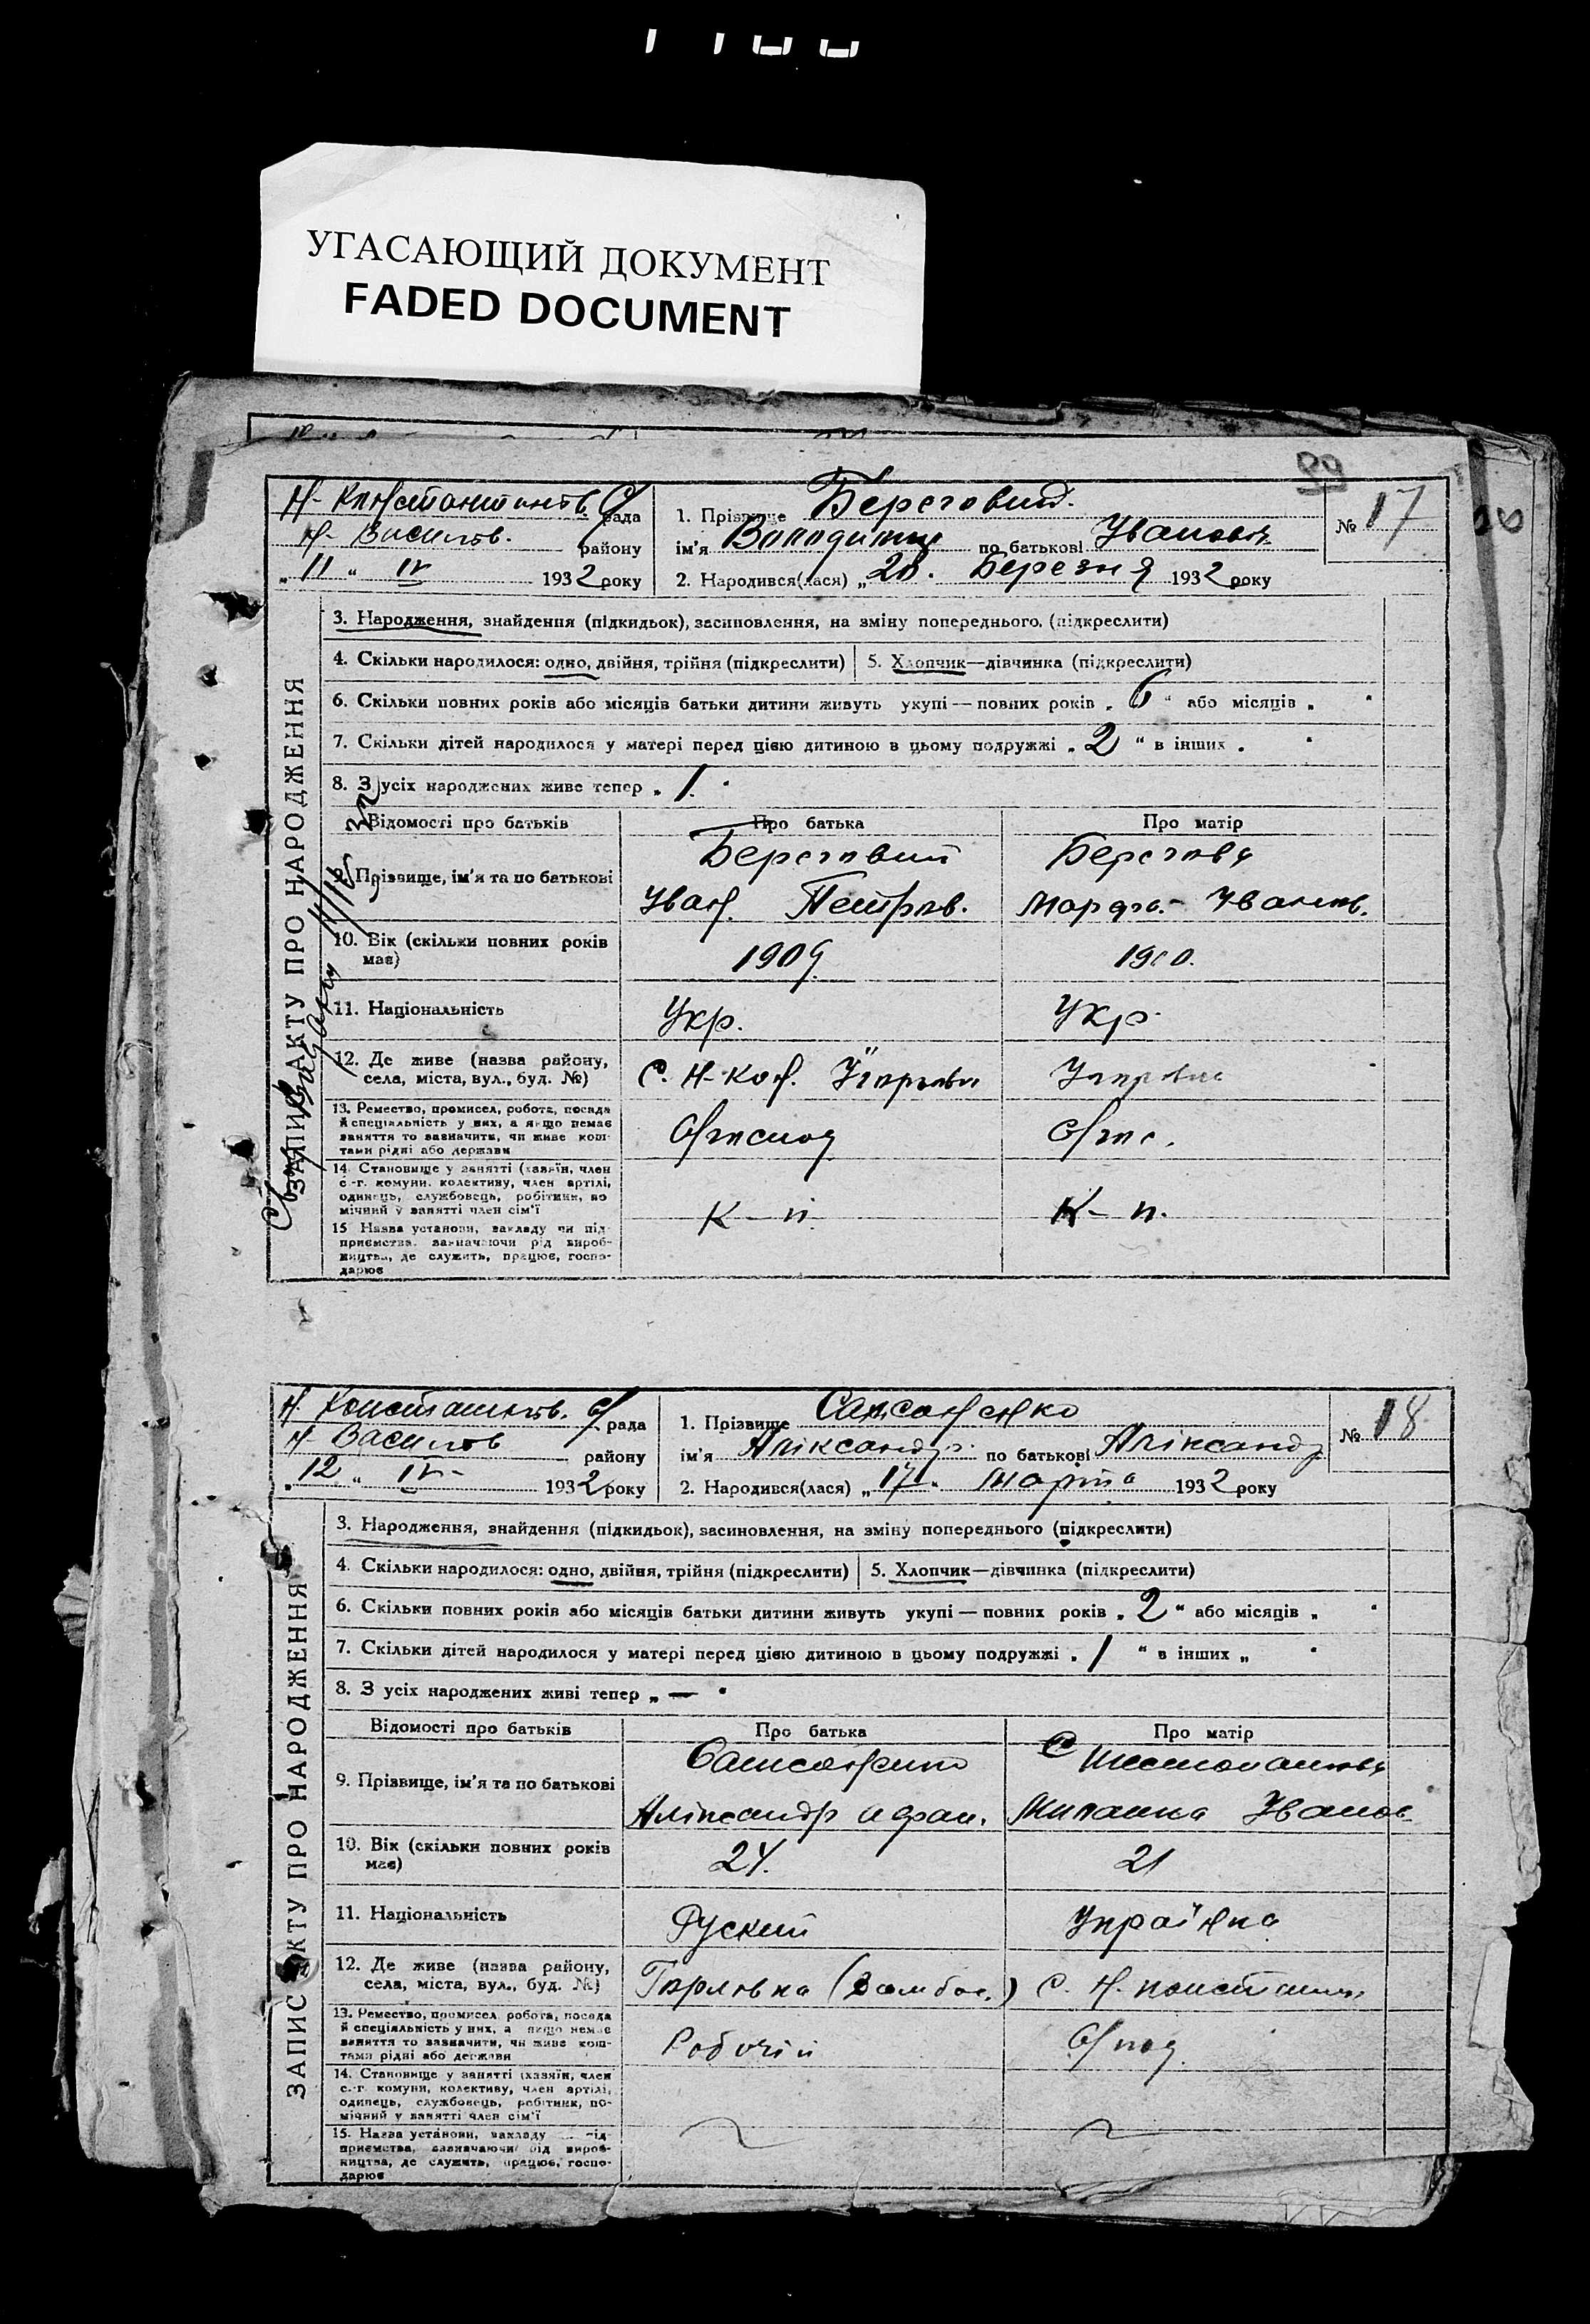 УГАСАЮЩИЙ ДОКУМЕНТ
FADED DOCUMENT
89
Н- Константинов. С/рада
Н- Василов. району
„ 11 “ IV 1932 року
1. Прізвище Береговий.
ім'я Володимир по батькові Уванов
2. Народився(лася) „ 20. Березня 1932 року
№ 17
ЗАПИС АКТУ ПРО НАРОДЖЕННЯ
3. Народження, знайдення (підкидьок), засиновлення, на зміну попереднього. (підкреслити)
4. Скільки народилося: одно, двійня, трійня (підкреслити)
5. Хлопчик—дівчинка (підкреслити)
6. Скільки повних років або місяців батьки дитини живуть укупі — повних років „ 6 “ або місяців „ “
7. Скільки дітей народилося у матері перед цією дитиною в цьому подружжі „ 2 “ в інших „ “
8. З усіх народжених живе тепер „ 1. “
Відомості про батьків
Про батька
Про матір
9. Прізвище, ім'я та по батькові
Береговий
Уван. Петров.
Берегова
Марфа - Уванов.
10. Вік (скільки повних років має)
1909
1900.
11. Національність
Укр.
Укр.
12. Де живе (назва району,
села, міста, вул., буд. №)
С. Н-Кон.
13. Ремество, промисел, робота, посада
й спеціяльність у них, а якщо немає
заняття то зазначити, чи живе кош-
тами рідні або держави
14. Становище у занятті (хазяїн, член
с.-г. комуни, колективу, член артілі,
одинець, службовець, робітник, по-
мічний у занятті член сім'ї
К - п.
К - п.
15 Назва установи, закладу чи під-
приємства, зазначаючи рід вироб-
ництва, де служить, працює, госпо-
дарює
Н. Константинов. с/рада
Н- Василов району
„ 12 “ IV - 1932 року
1. Прізвище Самсоненко
ім'я Аліксандр. по батькові Аліксандр
2. Народився(лася) „ 17 “ Марта 1932 року
№ 18
ЗАПИС АКТУ ПРО НАРОДЖЕННЯ
3. Народження, знайдення (підкидьок), засиновлення, на зміну попереднього (підкреслити)
4. Скільки народилося: одно, двійня, трійня (підкреслити)
5. Хлопчик—дівчинка (підкреслити)
6. Скільки повних років або місяців батьки дитини живуть укупі — повних років „ 2 “ або місяців „ “
7. Скільки дітей народилося у матері перед цією дитиною в цьому подружжі „ 1 “ в інших „ “
8. З усіх народжених живі тепер „ — “
Відомості про батьків
Про батька
Про матір
9. Прізвище, ім'я та по батькові
Самсоненко
Аліксандр Афан.
Миланка Уванов
10. Вік (скільки повних років має)
24.
21
11. Національність
Руский
Україниа
12. Де живе (назва району,
села, міста, вул., буд. №)
Горловка (Донбас.)
С. Н. Констант
13. Ремество, промисел, робота, посада
й спеціяльність у них, а якщо немає
заняття то зазначити, чи живе кош-
тами рідні або держави
Робочій
14. Становище у занятті (хазяїн, член
с.-г. комуни, колективу, член артілі,
одинець, службовець, робітник, по-
мічний у занятті член сім'ї
15. Назва установи, закладу під-
приємства, зазначаючи рід вироб-
ництва, де служить, працює, госпо-
дарює